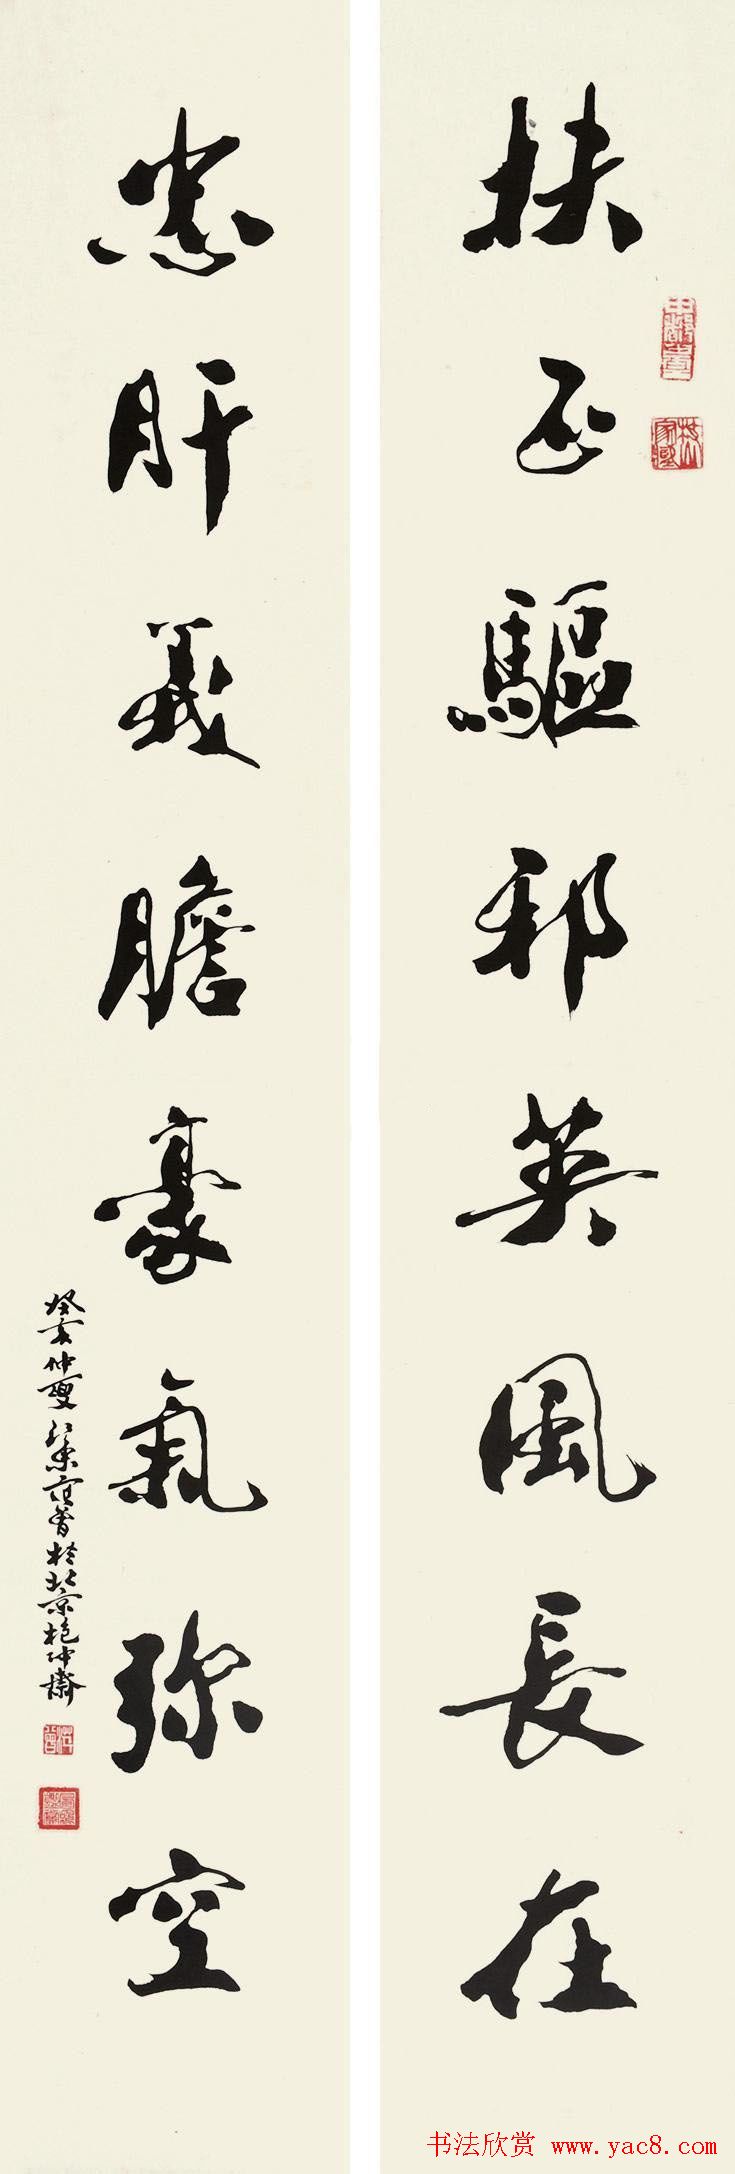 扶正驅邪英風長在
忠肝義膽豪氣弥空
癸亥仲夏江東范曾於北京抱冲齋
范曾
书法欣赏 www.yac8.com